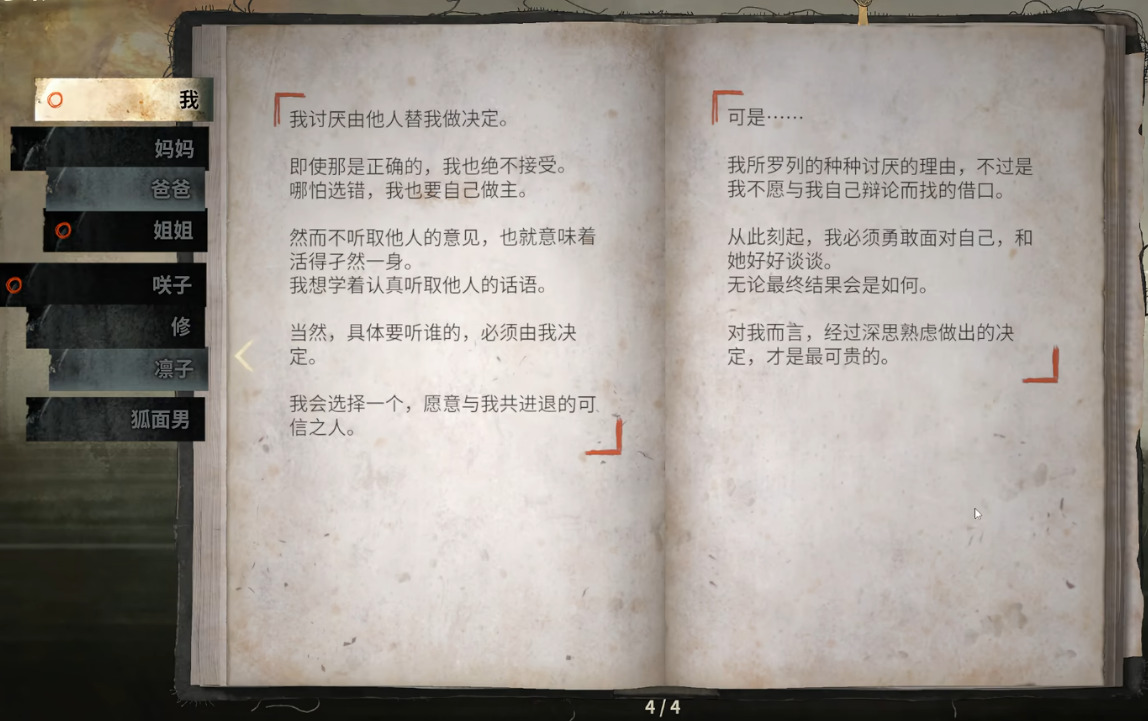 我
妈妈
爸爸
姐姐
咲子
修
凛子
狐面男
我讨厌由他人替我做决定。
即使那是正确的，我也绝不接受。
哪怕选错，我也要自己做主。
然而不听取他人的意见，也就意味着
活得孑然一身。
我想学着认真听取他人的话语。
当然，具体要听谁的，必须由我决
定。
我会选择一个，愿意与我共进退的可
信之人。
可是……
我所罗列的种种讨厌的理由，不过是
我不愿与我自己辩论而找的借口。
从此刻起，我必须勇敢面对自己，和
她好好谈谈。
无论最终结果会是如何。
对我而言，经过深思熟虑做出的决
定，才是最可贵的。
4/4